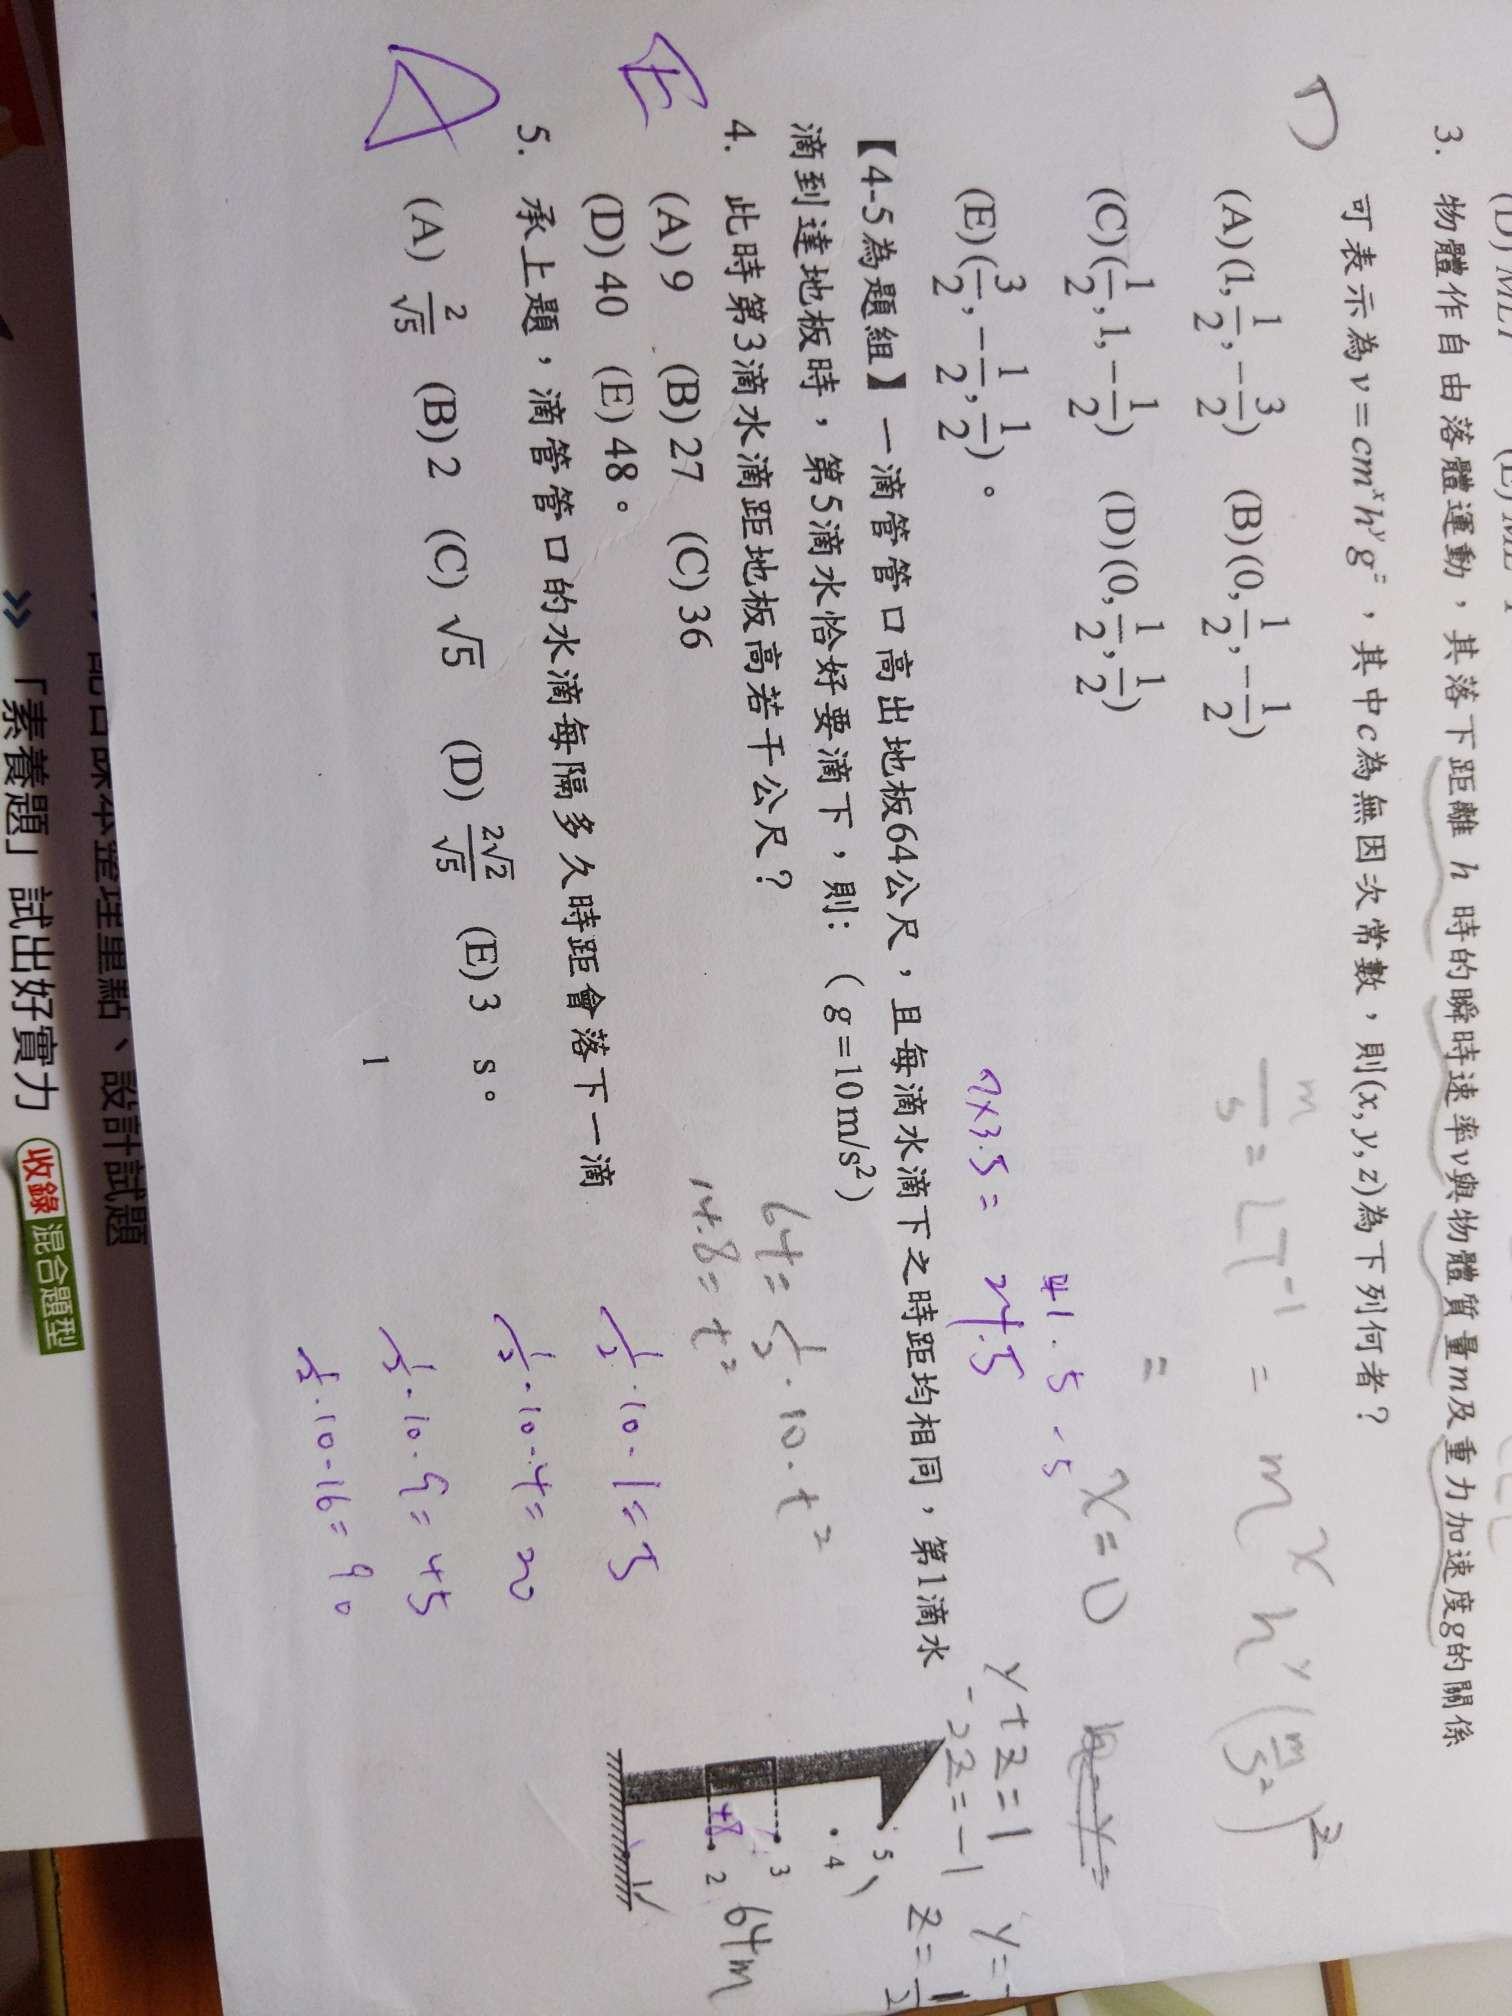 3. 物體作自由落體運動，其落下距離 h 時的瞬時速率v與物體質量m及重力加速度g的關係
可表示為v=cmˣhʸgᶻ，其中c為無因次常數，則(x, y, z)為下列何者？
D
(A)(1, 1/2, -3/2) (B)(0, 1/2, -1/2)
(C)(1/2, 1, -1/2) (D)(0, 1/2, 1/2)
(E)(3/2, -1/2, 1/2)。
m/s = LT⁻¹ = mˣ hʸ (m/s²)ᶻ
=
x=0
y+z=1
-2z=-1
z=1/2
41.5-5
7×3.5= 24.5
【4-5為題組】一滴管管口高出地板64公尺，且每滴水滴下之時距均相同，第1滴水
滴到達地板時，第5滴水恰好要滴下，則：（g=10m/s²）
E
4. 此時第3滴水滴距地板高若干公尺？
(A) 9 (B) 27 (C) 36
(D) 40 (E) 48。
64=1/2·10·t²
14.8=t²
5
4
3
2
1
64m
A
5. 承上題，滴管管口的水滴每隔多久時距會落下一滴
(A) 2/√5 (B) 2 (C) √5 (D) 2√2/√5 (E) 3 s。
1/2·10·1=5
1/2·10·4=20
1/2·10·9=45
1/2·10·16=90
1
設計試題
》 「素養題」試出好實力 收錄 混合題型